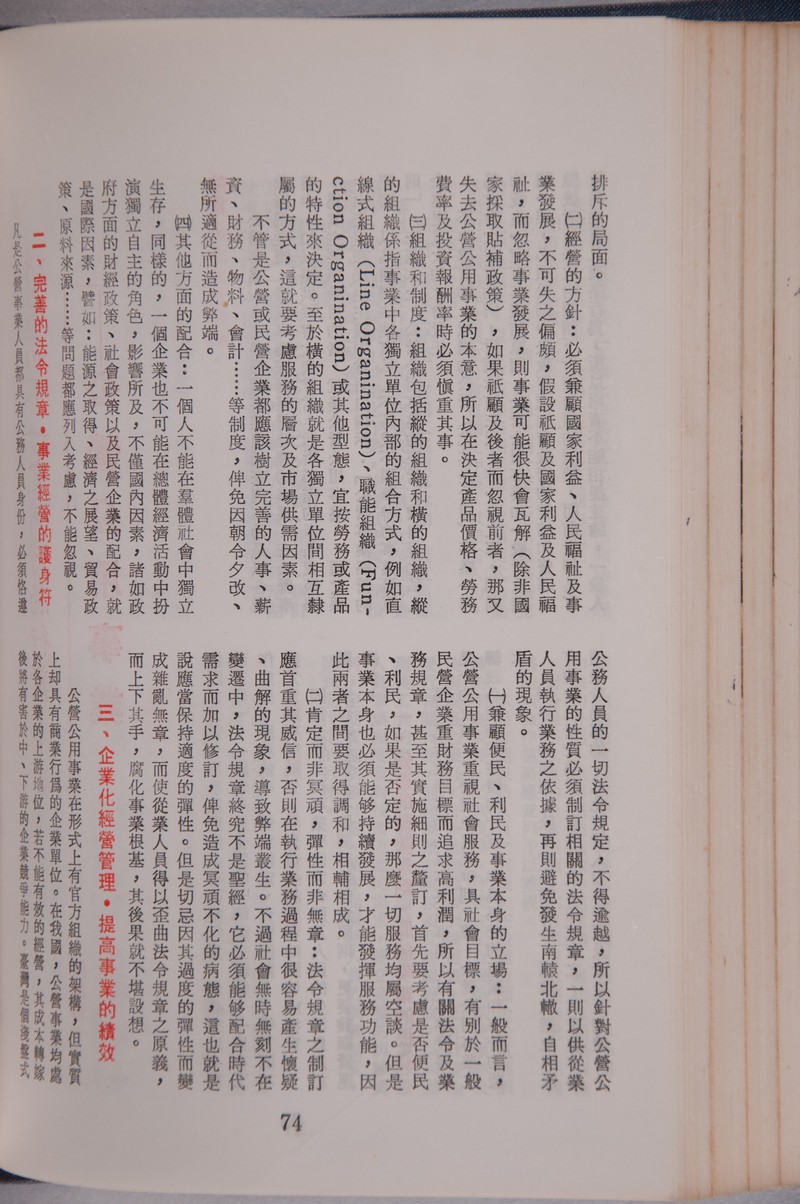 排斥的局面。
㈡經營的方針：必須兼顧國家利益、人民福祉及事
業發展，不可失之偏頗，假設祇顧及國家利益及人民福
祉，而忽略事業發展，則事業可能很快會瓦解（除非國
家採取貼補政策），如果祇顧及後者而忽視前者，那又
失去公營公用事業的本意，所以在決定產品價格、勞務
費率及投資報酬率時必須愼重其事。
㈢組織和制度：組織包括縱的組織和橫的組織，縱
的組織係指事業中各獨立單位內部的組合方式，例如直
線式組織（Line Organination）、職能組織（Fun-
ction Organination）或其他型態，宜按勞務或產品
的特性來決定。至於橫的組織就是各獨立單位間相互隸
屬的方式，這就要考慮服務的層次及市場供需因素。
不管是公營或民營企業都應該樹立完善的人事、薪
資、財務、物料、會計……等制度，俾免因朝令夕改、
無所適從而造成弊端。
㈣其他方面的配合：一個人不能在羣體社會中獨立
生存，同樣的，一個企業也不可能在總體經濟活動中扮
演獨立自主的角色，影響所及，不僅國內因素，諸如政
府方面的財經政策、社會政策以及民營企業的配合，就
是國際因素，譬如：能源之取得、經濟之展望、貿易政
策、原料來源……等問題都應列入考慮，不能忽視。
二、完善的法令規章•事業經營的護身符
凡是公營事業人員都具有公務人員身份，必須恪遵
公務人員的一切法令規定，不得逾越，所以針對公營公
用事業的性質必須制訂相關的法令規章，一則以供從業
人員執行業務之依據，再則避免發生南轅北轍，自相矛
盾的現象。
㈠兼顧便民、利民及事業本身的立場：一般而言，
公營公用事業重視社會服務，具社會目標，有別於一般
民營企業重財務目標而追求高利潤，所以有關法令及業
務規章，甚至其實施細則之釐訂，首先要考慮是否便民
、利民，如果是否定的，那麼一切服務均屬空談。但是
事業本身也必須能够持續發展，才能發揮服務功能，因
此兩者之間要取得調和，相輔相成。
㈡肯定而非冥頑，彈性而非無章：法令規章之制訂
應首重其威信，否則在執行業務過程中很容易產生懷疑
、曲解的現象，導致弊端叢生。不過社會無時無刻不在
變遷中，法令規章終究不是聖經，它必須能够配合時代
需求而加以修訂，俾免造成冥頑不化的病態，這也就是
說應當保持適度的彈性。但是切忌因其過度的彈性而變
成雜亂無章，而使從業人員得以歪曲法令規章之原義，
而上下其手，腐化事業根基，其後果就不堪設想。
三、企業化經營管理•提高事業的績效
公營公用事業在形式上有官方組織的架構，但實質
上却具有商業行爲的企業單位。在我國，公營事業均處
於各企業的上游地位，若不能有效的經營，其成本轉嫁
後將有害於中、下游的企業競爭能力。臺灣是個淺盤式
74